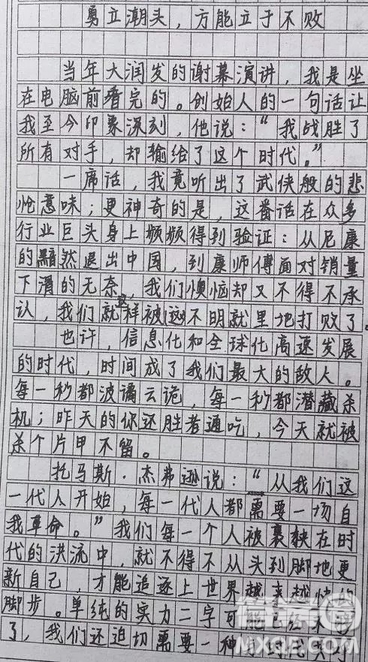 勇立潮头，方能立于不败
当年大润发的谢幕演讲，我是坐
在电脑前看完的。创始人的一句话让
我至今印象深刻，他说：“我战胜了
所有对手，却输给了这个时代。”
一席话，我竟听出了武侠般的悲
怆意味；更神奇的是，这番话在众多
行业巨头身上频频得到验证：从尼康
的黯然退出中国，到康师傅面对销量
下滑的无奈，我们懊恼却又不得不承
认，我们就这样被不明就里地打败了。
也许，信息化和全球化高速发展
的时代，时间成了我们最大的敌人。
每一秒都波谲云诡，每一秒都潜藏杀
机；昨天的你还胜者通吃，今天就被
杀个片甲不留。
托马斯·杰弗逊说：“从我们这
一代人开始，每一代人都需要一场自
我革命。”我们每一个人被裹挟在时
代的洪流中，就不得不从头到脚地更
新自己 才能追逐上世界越来越快的
脚步。单纯的实力二字可能已经不够
了，我们还迫切需要一种